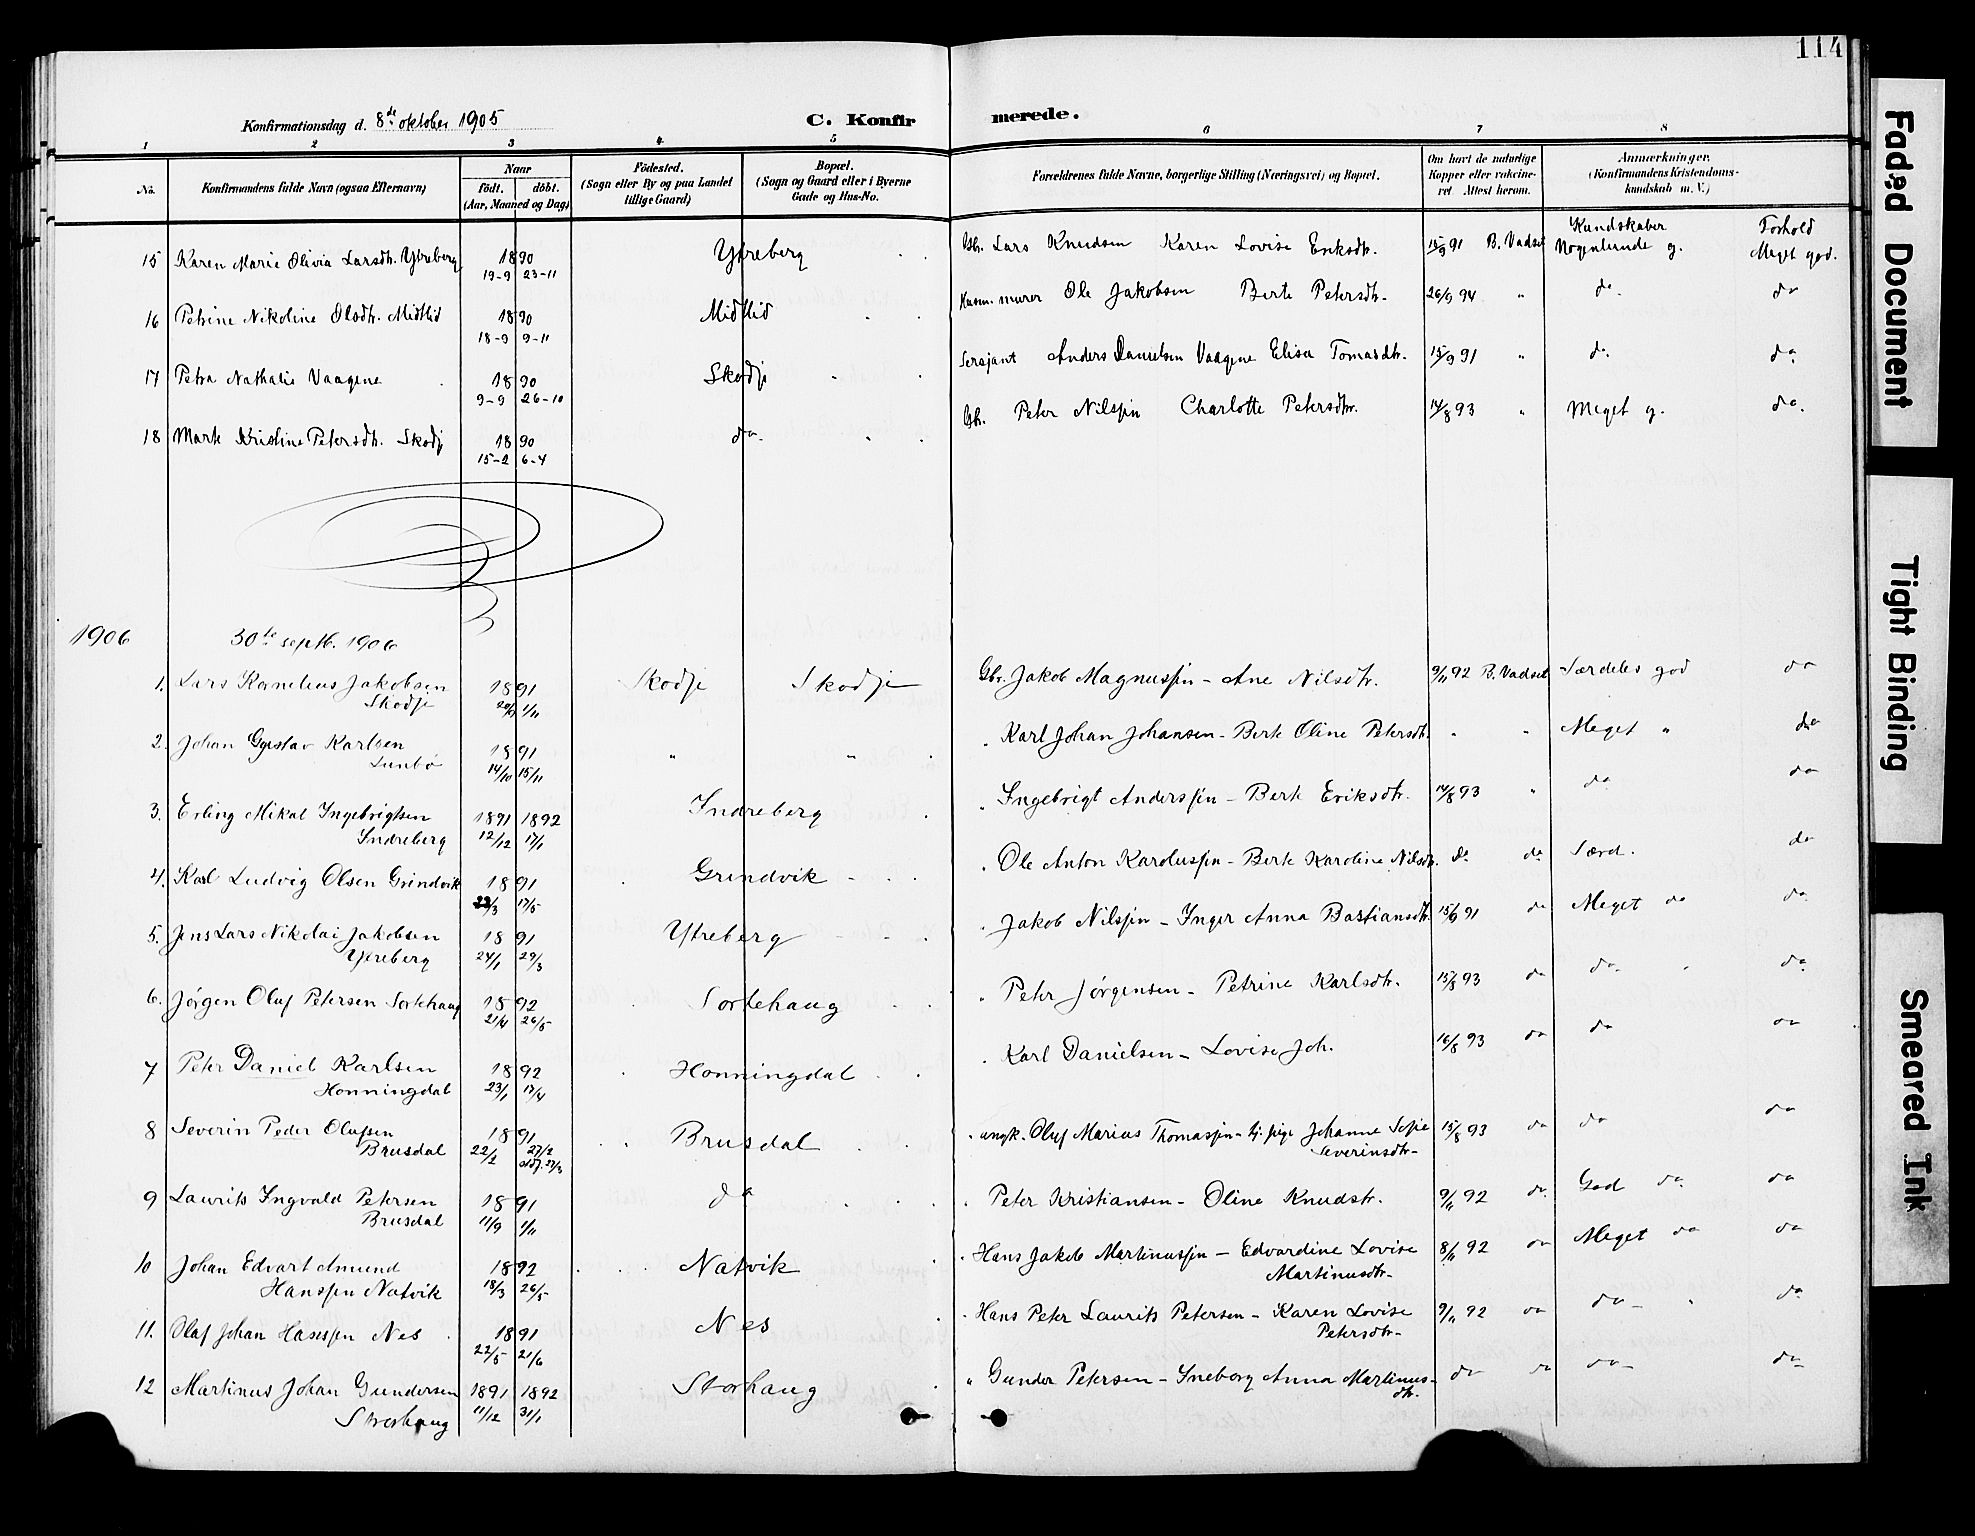 114
Konfirmationsdag d. 8de oktober 1905
C. Konfirmerede.
1 2 3 4 5 6 7 8
No.
Konfirmandens fulde Navn (ogsaa Efternavn)
Naar
födt. döbt.
(Aar, Maaned og Dag)
Födested.
(Sogn eller By og paa Landet
tillige Gaard)
Bopæl.
(Sogn og Gaard eller i Byerne
Gade og Hus-No.
Forældrenes fulde Navne, borgerlige Stilling (Næringsvei) og Bopæl.
Om havt de naturlige
Kopper eller vakcine-
ret Attest herom.
Anmærkninger.
(Konfirmandens Kristendoms-
kundskab m. V.)
Kundskaber Forhold
15 Karen Marie Olivia Larsdtr. Ytreberg 1890 Ytreberg Gbr. Lars Knudsen Karen Lovise Eriksdtr. 15/9 91 B. Vadset Nogenlunde g. Meget god.
19-9 23-11
16 Petrine Nikoline Olsdtr. Midtlid 1890 Midtlid Husm. murer Ole Jakobsen Berte Petersdtr. 26/9 94 " do. do
18-9 9-11
17 Petra Nathalie Vaagene 1890 Skodje Sersjant Anders Danielsen Vaagene Elise Tomasdtr. 15/9 91 " do. do.
9-9 26-10
18 Marte Kristine Petersdtr. Skodje 1890 do. Gbr. Peter Nilssen Charlotte Petersdtr. 14/8 93 " Meget g. do.
15-2 6-4
1906 30te septb. 1906
1. Lars Kornelius Jakobsen 1891 Skodje Skodje Gbr. Jakob Magnussen - Ane Nilsdtr. 9/11 92 B. Vadset Særdeles god do
Skodje 1/11
2. Johan Gustav Karlsen 1891 " " " Karl Johan Johansen - Berte Oline Petersdtr. " " Meget " do
14/10 15/11
3. Erling Mikal Ingebrigtsen 1891 1892 Indreberg " Ingebrigt Anderssen - Berte Eriksdtr. 14/8 93 " do do
Indreberg 12/12 17/1
4. Karl Ludvig Olsen Grindvik 1891 Grindvik " Ole Anton Karolussen - Berte Karoline Nilsdtr. do do Særd. do
17/5
5. Jens Lars Nikolai Jakobsen 1891 Ytreberg " Jakob Nilssen - Inger Anna Bastiansdtr. 15/9 91 do Meget do do
Ytreberg 24/1 29/3
6. Jörgen Oluf Petersen Sortehaug 1892 Sortehaug " Peter Jörgensen - Petrine Karlsdtr. 15/8 93 do do. " do
21/4 26/5
7 Peter Daniel Karlsen 1892 Honningdal " Karl Danielsen - Lovise Joh. 16/8 93 do do do
Honningdal 23/1 17/4
8 Severin Peder Olufsen 1891 Brusdal " ungk. Oluf Marius Thomassen - pige Johanne Sofie 15/8 93 do do do
Brusdal 22/2 27/2 Severinsdtr-
9 Laurits Ingvald Petersen 1891 do " Peter Kristiansen - Oline Knudstr. 9/11 92 do. God do. do
Brusdal 11/9 1/11
10 Johan Edvart Amund 1892 Natvik " Hans Jakob Martinussen - Edvardine Lovise 8/11 92 do Meget do do
Hanssen Natvik 18/3 26/5 Martinusdtr-
11. Olaf Johan Hanssen Nes 1891 Nes " Hans Peter Laurits Petersen - Karen Lovise 9/11 92 do do - " do
22/5 21/6 Petersdtr-
12 Martinus Johan Gundersen 1891 1892 Storhaug " Gunder Petersen - Ineborg Anna Martinus- do do do - do
Storhaug 11/12 31/1 dtr.
Faded Document
Tight Binding
Smeared Ink